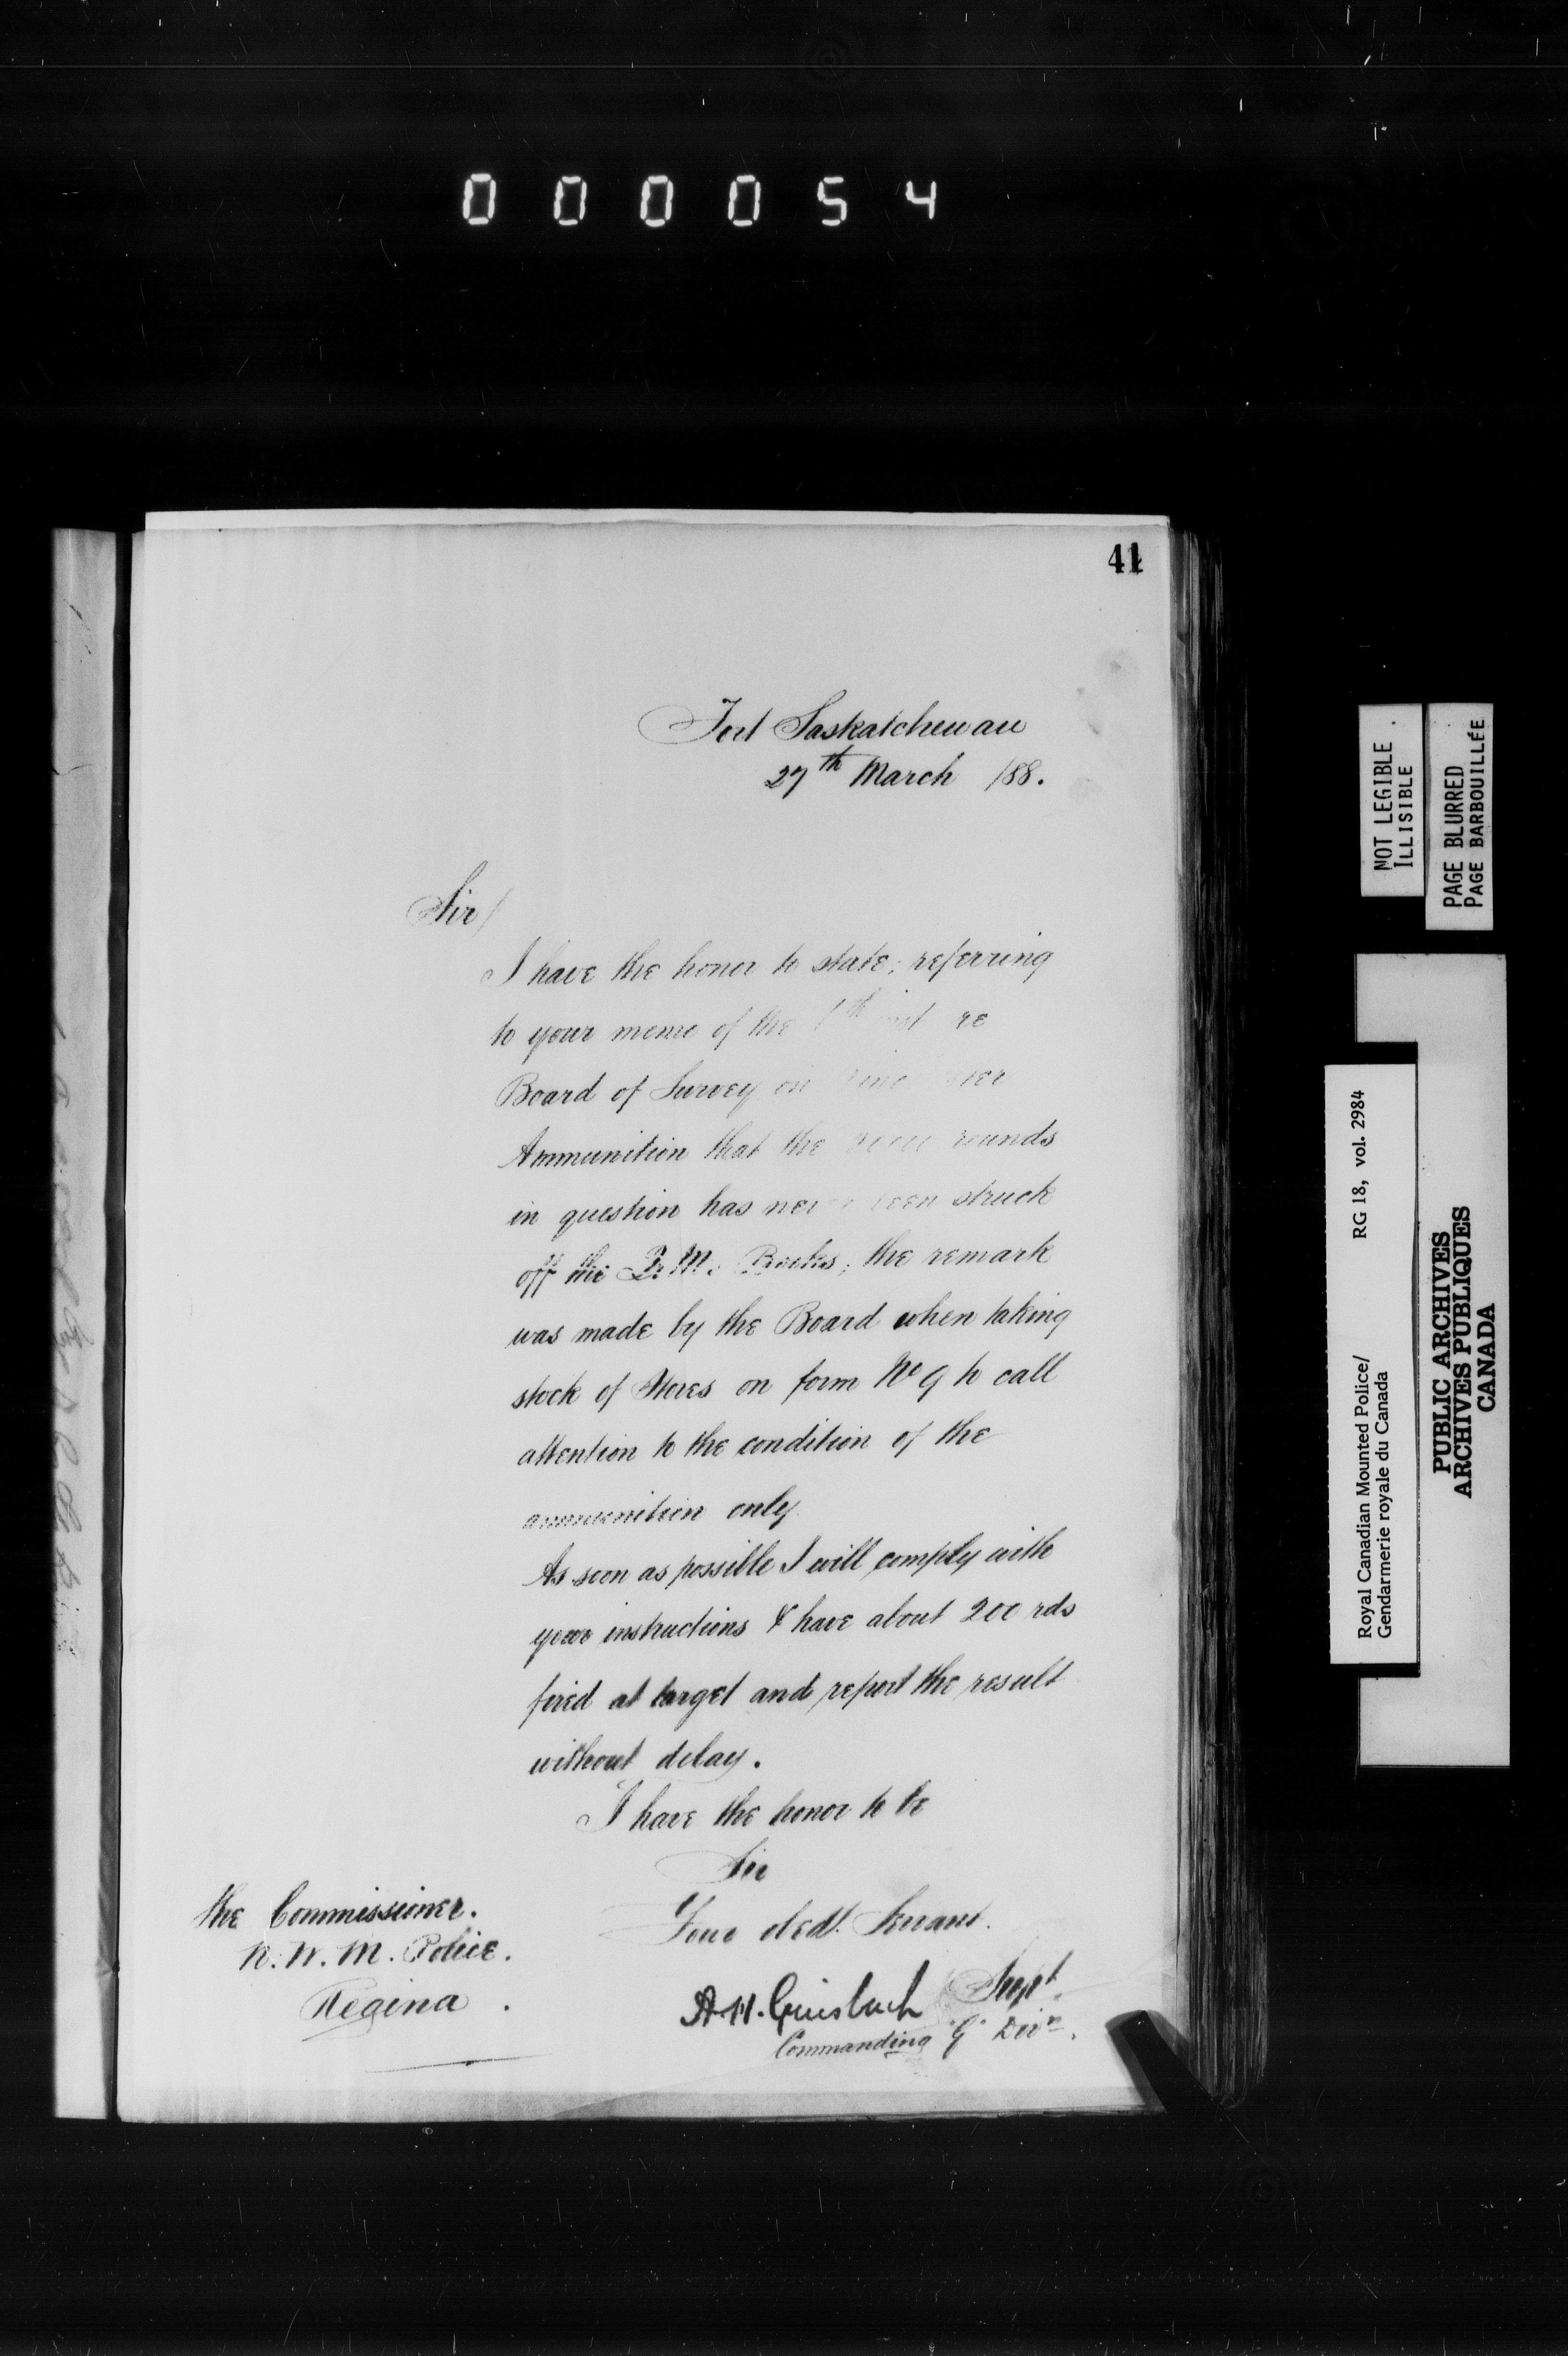 000054
41
Fort Saskatchewan
27th March /88.
Sir/
I have the honor to state; referring
to your memo of the inst re
Board of Survey on
Ammunition that the rounds
in question has never been struck
off the Q. M. Books; the remark
was made by the Board when taking
stock of Stores on form No 9 to call
attention to the condition of the
ammunition only
As soon as possible I will comply with
your instructions & have about 200 rds
fired at target and report the result
without delay.
I have the honor to be
Sir
Your obedt. Servant.
A. H. Griesbach Supt.
Commanding "G" Divn.
The Commissioner.
N. W. M. Police.
Regina.
NOT LEGIBLE
ILLISIBLE
PAGE BLURRED
PAGE BARBOUILLÉE
Royal Canadian Mounted Police/ RG 18, vol. 2984
Gendarmerie royale du Canada
PUBLIC ARCHIVES
ARCHIVES PUBLIQUES
CANADA